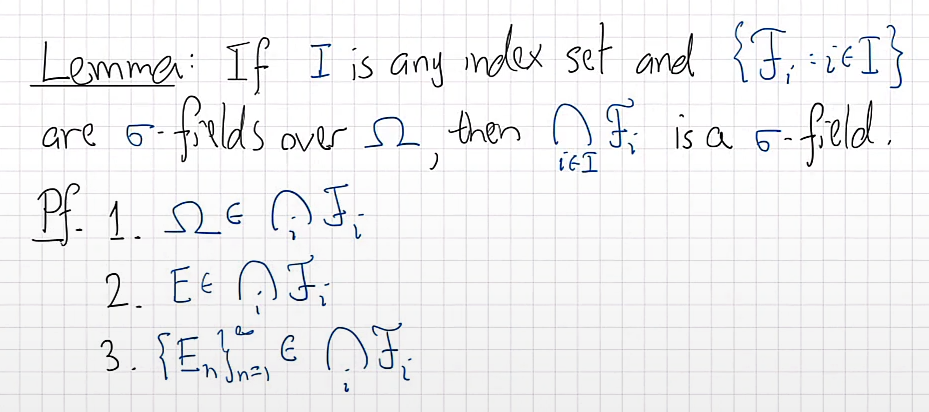 Lemma: If I is any index set and {ℱᵢ : i∈I}
are σ-fields over Ω, then ⋂_{i∈I} ℱᵢ is a σ-field.
Pf. 1. Ω ∈ ⋂ᵢ ℱᵢ
2. E ∈ ⋂ᵢ ℱᵢ
3. {Eₙ}_{n=1}^∞ ∈ ⋂ᵢ ℱᵢ